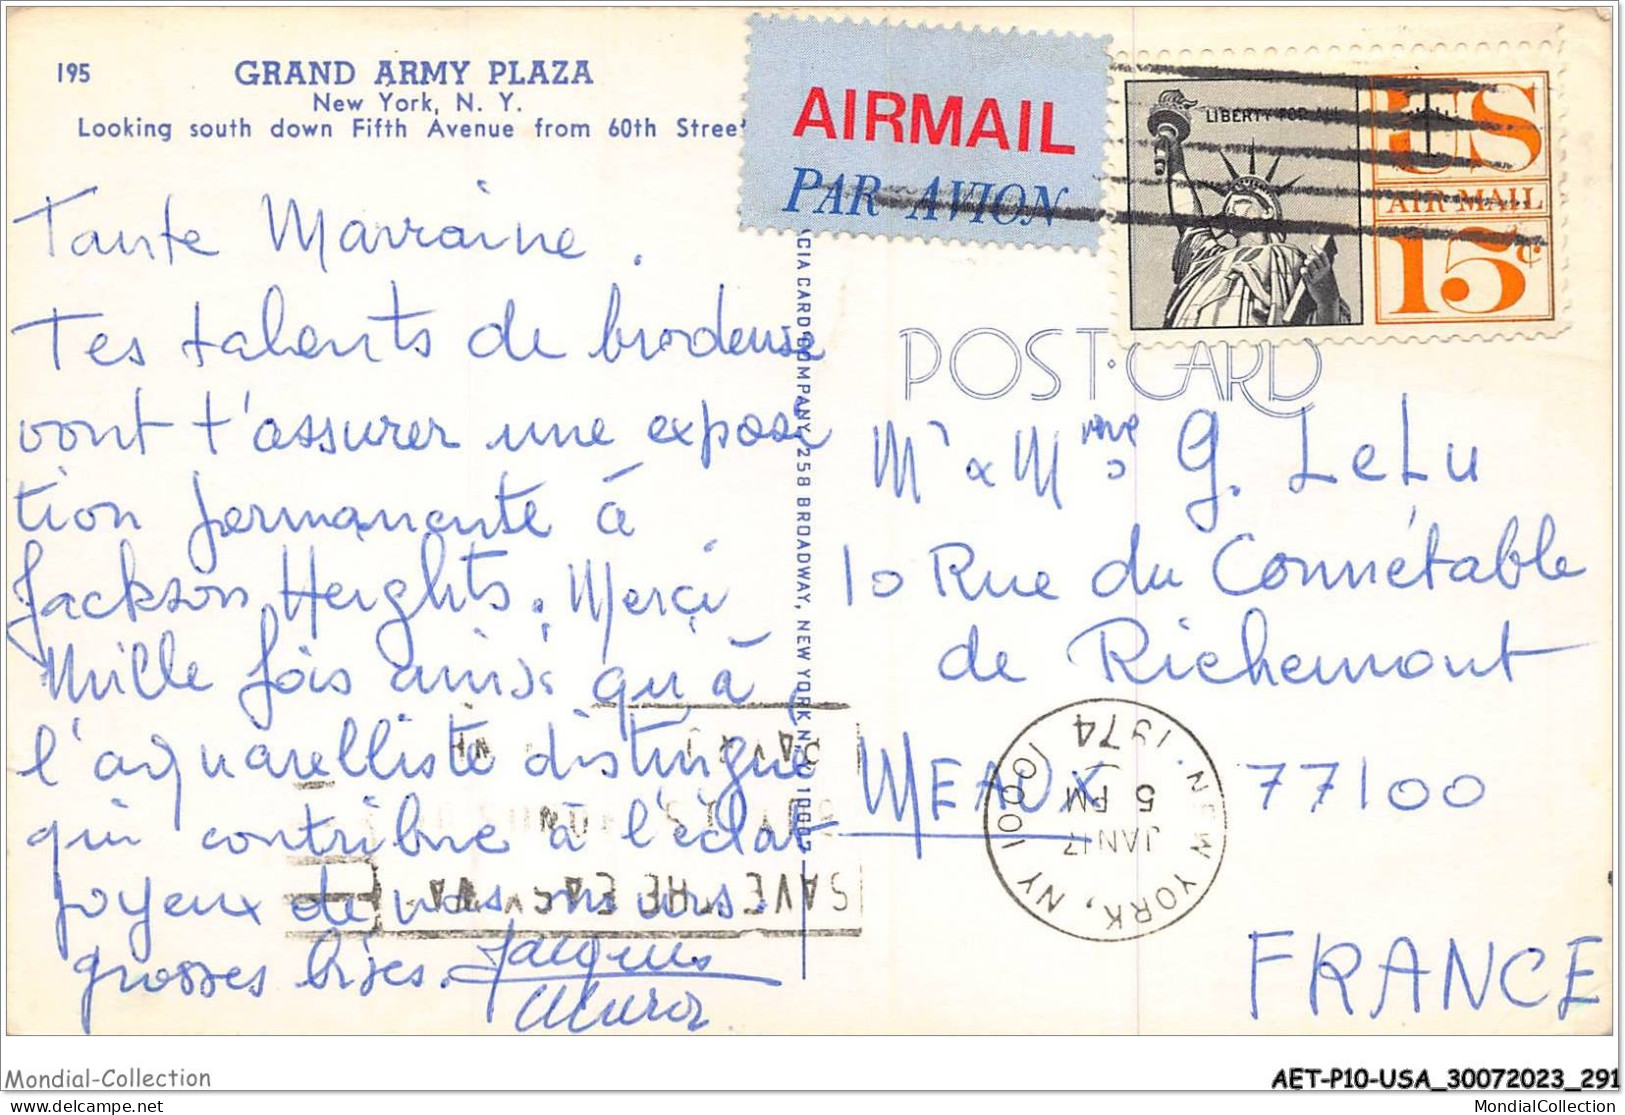 195 GRAND ARMY PLAZA
New York, N. Y.
Looking south down Fifth Avenue from 60th Street
AIRMAIL
PAR AVION
LIBERTY FOR ALL
US
AIR MAIL
15¢
POST CARD
Tante Marraine.
Tes talents de brodeuse
vont t'assurer une exposi
tion permanente à
Jackson Heights. Merci
Mille fois ainsi qu'à
l'aquarelliste distingué
qui contribue à l'éclat
joyeux de nos murs.
grosses bises. Jacques
CARD COMPANY, 258 BROADWAY, NEW YORK, N. Y. 10007
Mr & Mme G. LeLu
10 Rue du Connétable
de Richemont
MEAUX 77100
FRANCE
NEW YORK, NY 10001
JAN 17
5 PM
1974
SAVE THE
Mondial-Collection
AET-P10-USA_30072023_291
www.delcampe.net
MondialCollection